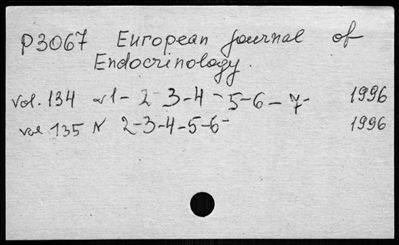 P3067 European Journal of
Endocrinology.
vol. 134 N1-2-3-4-5-6-7- 1996
vol 135 N 2-3-4-5-6- 1996